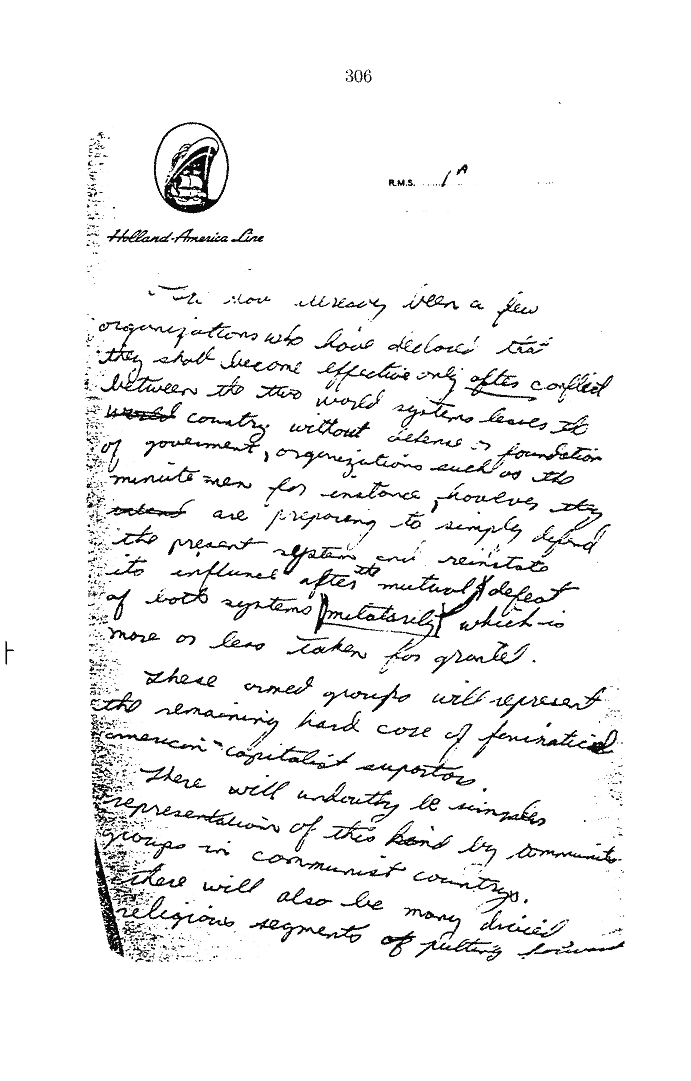 306
R.M.S. 1 A
Holland-America Line
now already been a few
organizations who have declared that
they shall become effective only after conflict
between the two world systems leaves the
world country without defense or foundation
of goverment, organizations such as the
minute men for instance, however they
intend are preparing to simply defend
the present system and reinstate
its influnce after the mutual defeat
of both systems militarily which is
more or less taken for granted.
These armed groups will represent
the remaining hard core of
american-capitalist supportors.
There will undoutly be similar
representation of this kind by communist
groups in communist countrys.
there will also be many
religious segments of putting forward